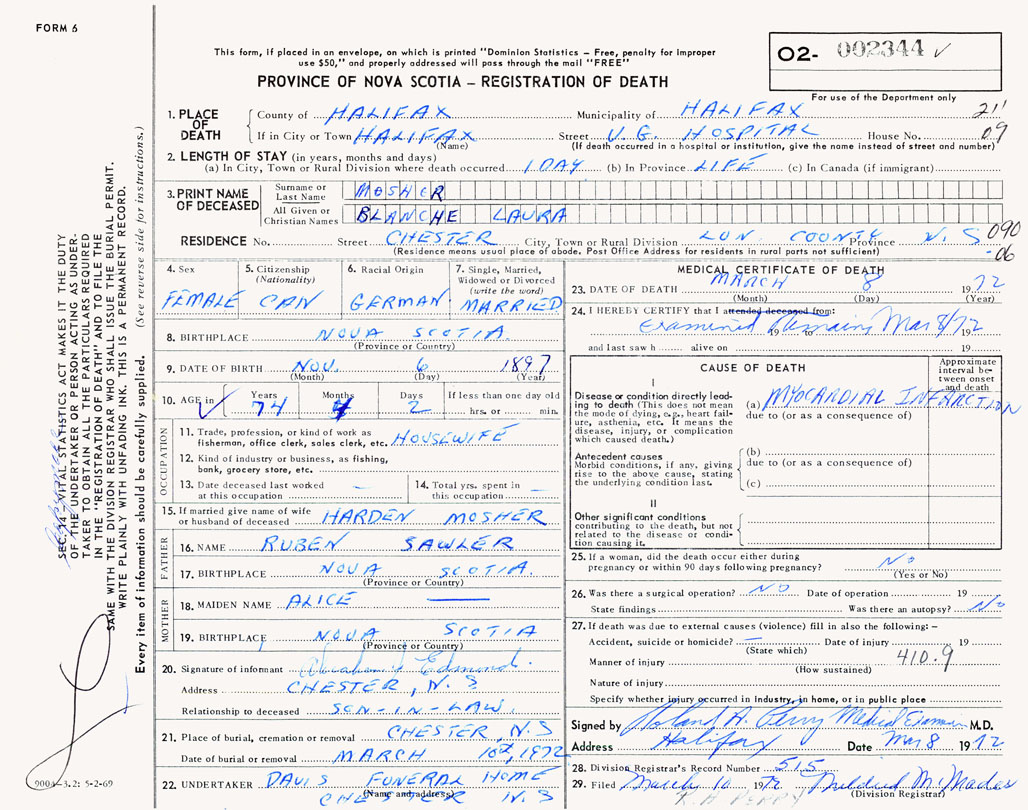 FORM 6
This form, if placed in an envelope, on which is printed "Dominion Statistics – Free, penalty for improper
use $50," and properly addressed will pass through the mail "FREE"
PROVINCE OF NOVA SCOTIA – REGISTRATION OF DEATH
02- 002344 ✓
For use of the Department only
1. PLACE OF DEATH
County of HALIFAX Municipality of HALIFAX 21'
If in City or Town HALIFAX Street V.G. HOSPITAL House No. 09
(Name) (If death occurred in a hospital or institution, give the name instead of street and number)
2. LENGTH OF STAY (in years, months and days)
(a) In City, Town or Rural Division where death occurred 1 DAY (b) In Province LIFE (c) In Canada (if immigrant)
3. PRINT NAME OF DECEASED
Surname or Last Name MOSHER
All Given or Christian Names BLANCHE LAURA
RESIDENCE No. Street CHESTER City, Town or Rural Division LUN. COUNTY Province N.S 090
(Residence means usual place of abode. Post Office Address for residents in rural parts not sufficient) -06
4. Sex FEMALE
5. Citizenship (Nationality) CAN
6. Racial Origin GERMAN
7. Single, Married, Widowed or Divorced (write the word) MARRIED
8. BIRTHPLACE NOVA SCOTIA.
(Province or Country)
9. DATE OF BIRTH NOV. 6 1897
(Month) (Day) (Year)
10. AGE in ✓ Years 74 Months 4 Days 2 If less than one day old
hrs. or min.
OCCUPATION
11. Trade, profession, or kind of work as
fisherman, office clerk, sales clerk, etc. HOUSEWIFE
12. Kind of industry or business, as fishing,
bank, grocery store, etc.
13. Date deceased last worked
at this occupation —
14. Total yrs. spent in
this occupation —
15. If married give name of wife
or husband of deceased HARDEN MOSHER
FATHER
16. NAME RUBEN SAWLER
17. BIRTHPLACE NOVA SCOTIA.
(Province or Country)
MOTHER
18. MAIDEN NAME ALICE ——
19. BIRTHPLACE NOVA SCOTIA
(Province or Country)
20. Signature of informant Edmund
Address CHESTER, N.S
Relationship to deceased SON-IN-LAW.
21. Place of burial, cremation or removal CHESTER, N.S
Date of burial or removal MARCH 10th, 1972
22. UNDERTAKER DAVIS FUNERAL HOME
(Name and address)
CHESTER N.S
MEDICAL CERTIFICATE OF DEATH
23. DATE OF DEATH MARCH 8 1972
(Month) (Day) (Year)
24. I HEREBY CERTIFY that I attended deceased from:
Examined Remains Mar 8/72
19 19
and last saw h alive on 19
CAUSE OF DEATH
Approximate interval between onset and death
I
Disease or condition directly leading to death (This does not mean the mode of dying, e.g., heart failure, asthenia, etc. It means the disease, injury, or complication which caused death.)
(a) MYOCARDIAL INFARCTION
due to (or as a consequence of)
Antecedent causes
Morbid conditions, if any, giving rise to the above cause, stating the underlying condition last.
(b)
due to (or as a consequence of)
(c)
II
Other significant conditions
contributing to the death, but not related to the disease or condition causing it.
25. If a woman, did the death occur either during
pregnancy or within 90 days following pregnancy? No
(Yes or No)
26. Was there a surgical operation? NO Date of operation 19
State findings Was there an autopsy? No
27. If death was due to external causes (violence) fill in also the following:–
Accident, suicide or homicide? — Date of injury 19
(State which)
Manner of injury 410.9
(How sustained)
Nature of injury
Specify whether injury occurred in industry, in home, or in public place
Signed by Roland A. Perry Medical Examiner M.D.
Address Halifax Date Mar 8 1972
28. Division Registrar's Record Number 515
29. Filed March 10 1972 Mildred M.
(Division Registrar)
R.A PERRY
SEC. 14 – VITAL STATISTICS ACT MAKES IT THE DUTY
OF THE UNDERTAKER OR PERSON ACTING AS UNDER-
TAKER TO OBTAIN ALL THE PARTICULARS REQUIRED
IN THE "REGISTRATION OF DEATH" AND TO FILE THE
SAME WITH THE DIVISION REGISTRAR WHO SHALL ISSUE THE BURIAL PERMIT.
WRITE PLAINLY WITH UNFADING INK. THIS IS A PERMANENT RECORD.
Every item of information should be carefully supplied. (See reverse side for instructions.)
9004–3.2: 5-2-69